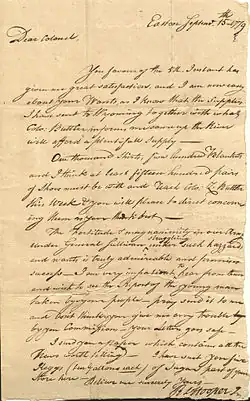 Easton Septem. 15th 1779
Dear Colonel
Your favour of the 5th Instant has
given me great satisfaction, and I am now easy
about your Wants, as I know that the Supplies
I have sent to Wyoming together with what
Colo. Butler informs me
will afford a plentiful Supply
One thousand Shirts, five hundred Blankets
and I think at least fifteen hundred pairs
of Shoes must be with and Colo. Z. Butler
this Week You will please to direct concern
ing them as you think best
The Fortitude & magnanimity in our Army
under General Sullivan, such hazard
and wants is truly admirable and promises
success I am very impatient to hear from them
and wish to see the Report of the young man
taken by your people pray send it to me
and dont think you give me any trouble
by your Commissions your Letters go safe
I send you a paper which contains all the
News worth telling I have sent you five
Keggs (ten Gallons each) of Sugar part of your
Store here Believe me sincerely Yours
R L Hooper Jr